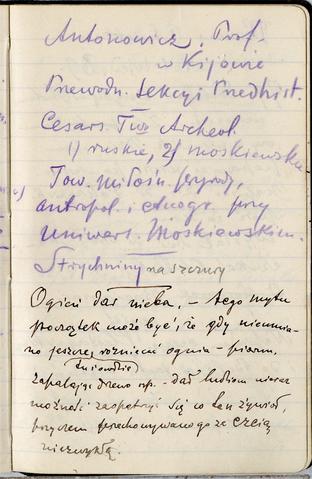 Antonowicz, Prof.
w Kijowie
Przewodn. Sekcyi Przedhist.
Cesars. Tow. Archeol.
1) ruskie, 2) moskiewskie
Tow. miłośn. przyrody,
antropol. i etnogr. przy
Uniwers. Moskiewskim.
Strychniny na szczury
Ogień dar nieba. – tego mytu
początek może być, że gdy nieumia-
no jeszcze rozniecać ognia – piorun,
zapalając drewno np. – dał ludziom nieraz
możność zaopatrzyć się w ten żywioł,
przechowywanego ze czcią
niezwykłą.